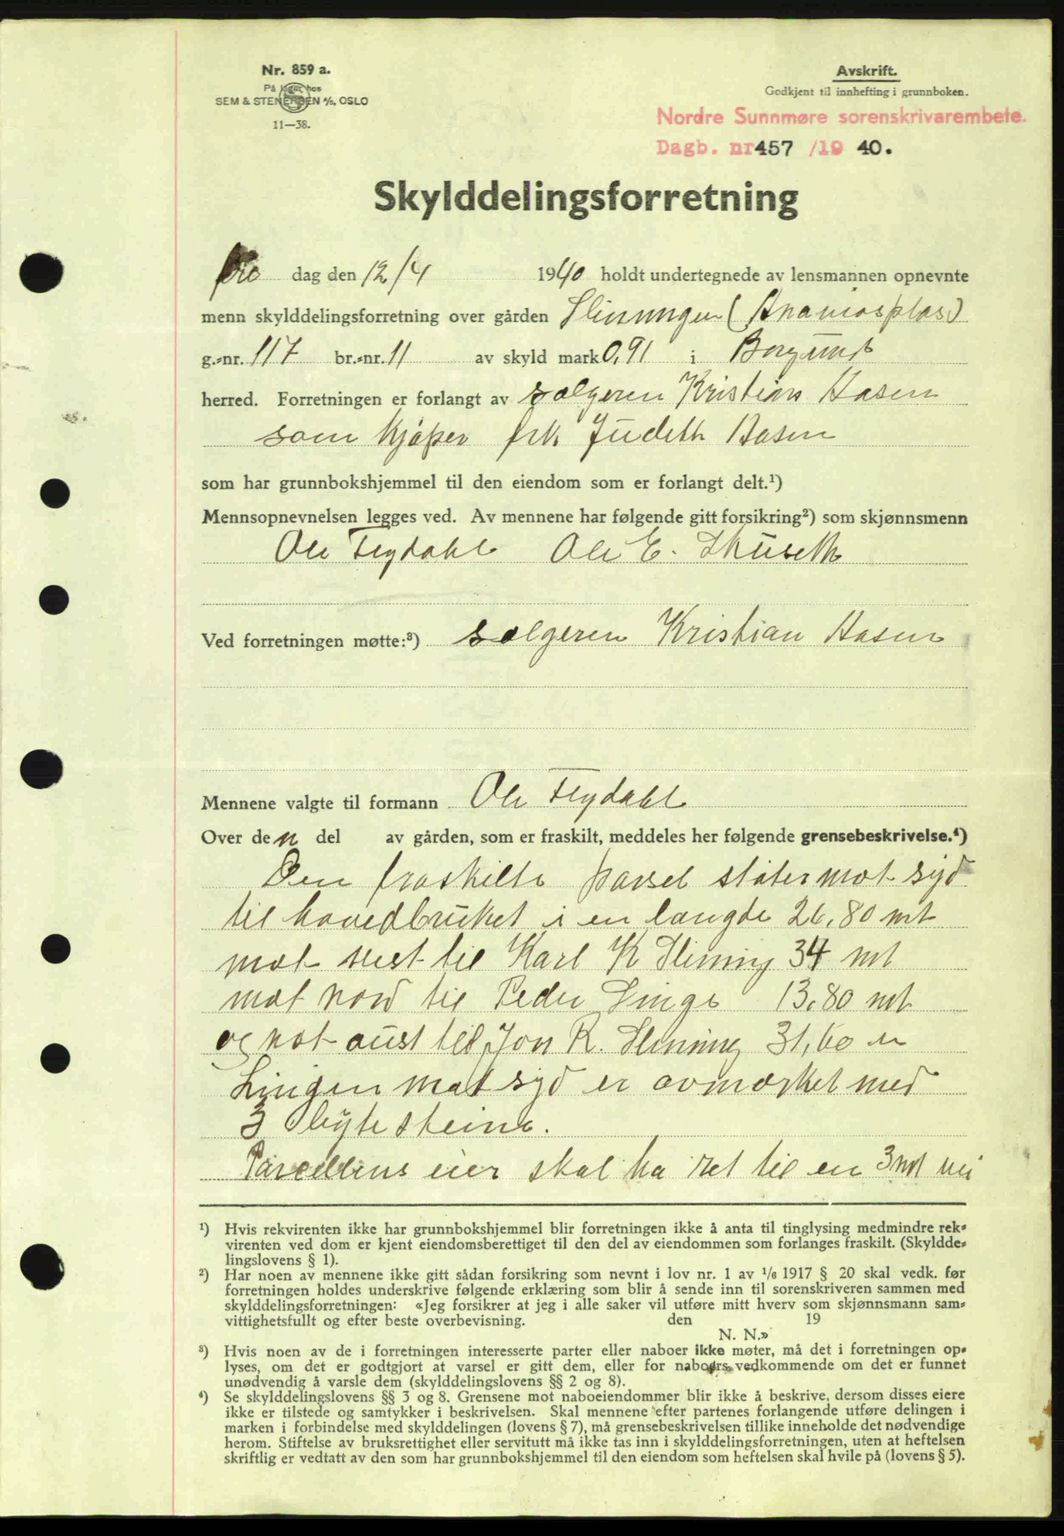 Nr. 859 a.
På lager hos
SEM & STENERSEN A/S, OSLO
11—38.
Avskrift.
Godkjent til innhefting i grunnboken.
Nordre Sunnmøre sorenskrivarembete.
Dagb. nr 457 /19 40.
Skylddelingsforretning
dag den 12/4 1940 holdt undertegnede av lensmannen opnevnte
menn skylddelingsforretning over gården Slinningen (Ananiasplas)
g.-nr. 117 br.-nr. 11 av skyld mark 0,91 i Borgund
herred. Forretningen er forlangt av sælgeren Kristian Aasen
som kjøper frk Judeth Aasen
som har grunnbokshjemmel til den eiendom som er forlangt delt.¹)
Mennsopnevnelsen legges ved. Av mennene har følgende gitt forsikring²) som skjønnsmenn
Ole Flydahl Ole E. Skuseth
Ved forretningen møtte:³) sælgeren Kristian Aasen
Mennene valgte til formann Ole Flydahl
Over den del av gården, som er fraskilt, meddeles her følgende grensebeskrivelse.⁴)
Den fraskilte parsel støter mot syd
til hovedbruket i en længde 26,80 mt
mot vest til Karl K Slinning 34 mt
mot nord til Peder Linge 13,80 mt
og mot aust til Jon R. Slinning 31,60 en
Linjen mot syd er avmærket med
3 bytesteine.
Parcellens eier skal ha ret til en 3 mt vei
¹) Hvis rekvirenten ikke har grunnbokshjemmel blir forretningen ikke å anta til tinglysing medmindre rek-
virenten ved dom er kjent eiendomsberettiget til den del av eiendommen som forlanges fraskilt. (Skyldde-
lingslovens § 1).
²) Har noen av mennene ikke gitt sådan forsikring som nevnt i lov nr. 1 av ¹/₆ 1917 § 20 skal vedk. før
forretningen holdes underskrive følgende erklæring som blir å sende inn til sorenskriveren sammen med
skylddelingsforretningen: «Jeg forsikrer at jeg i alle saker vil utføre mitt hverv som skjønnsmann sam-
vittighetsfullt og efter beste overbevisning. den 19
N. N.»
³) Hvis noen av de i forretningen interesserte parter eller naboer ikke møter, må det i forretningen op-
lyses, om det er godtgjort at varsel er gitt dem, eller for naboers vedkommende om det er funnet
unødvendig å varsle dem (skylddelingslovens §§ 2 og 8).
⁴) Se skylddelingslovens §§ 3 og 8. Grensene mot naboeiendommer blir ikke å beskrive, dersom disses eiere
ikke er tilstede og samtykker i beskrivelsen. Skal mennene efter partenes forlangende utføre delingen i
marken i forbindelse med skylddelingen (lovens § 7), må grensebeskrivelsen tillike inneholde det nødvendige
herom. Stiftelse av bruksrettighet eller servitutt må ikke tas inn i skylddelingsforretningen, uten at heftelsen
skriftlig er vedtatt av den som har grunnbokshjemmel til den eiendom som heftelsen skal hvile på (lovens § 5).